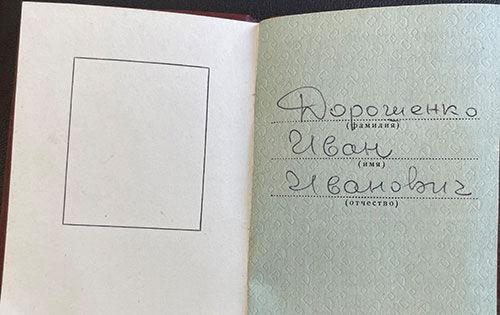 Дорошенко
(фамилия)
Иван
(имя)
Иванович
(отчество)